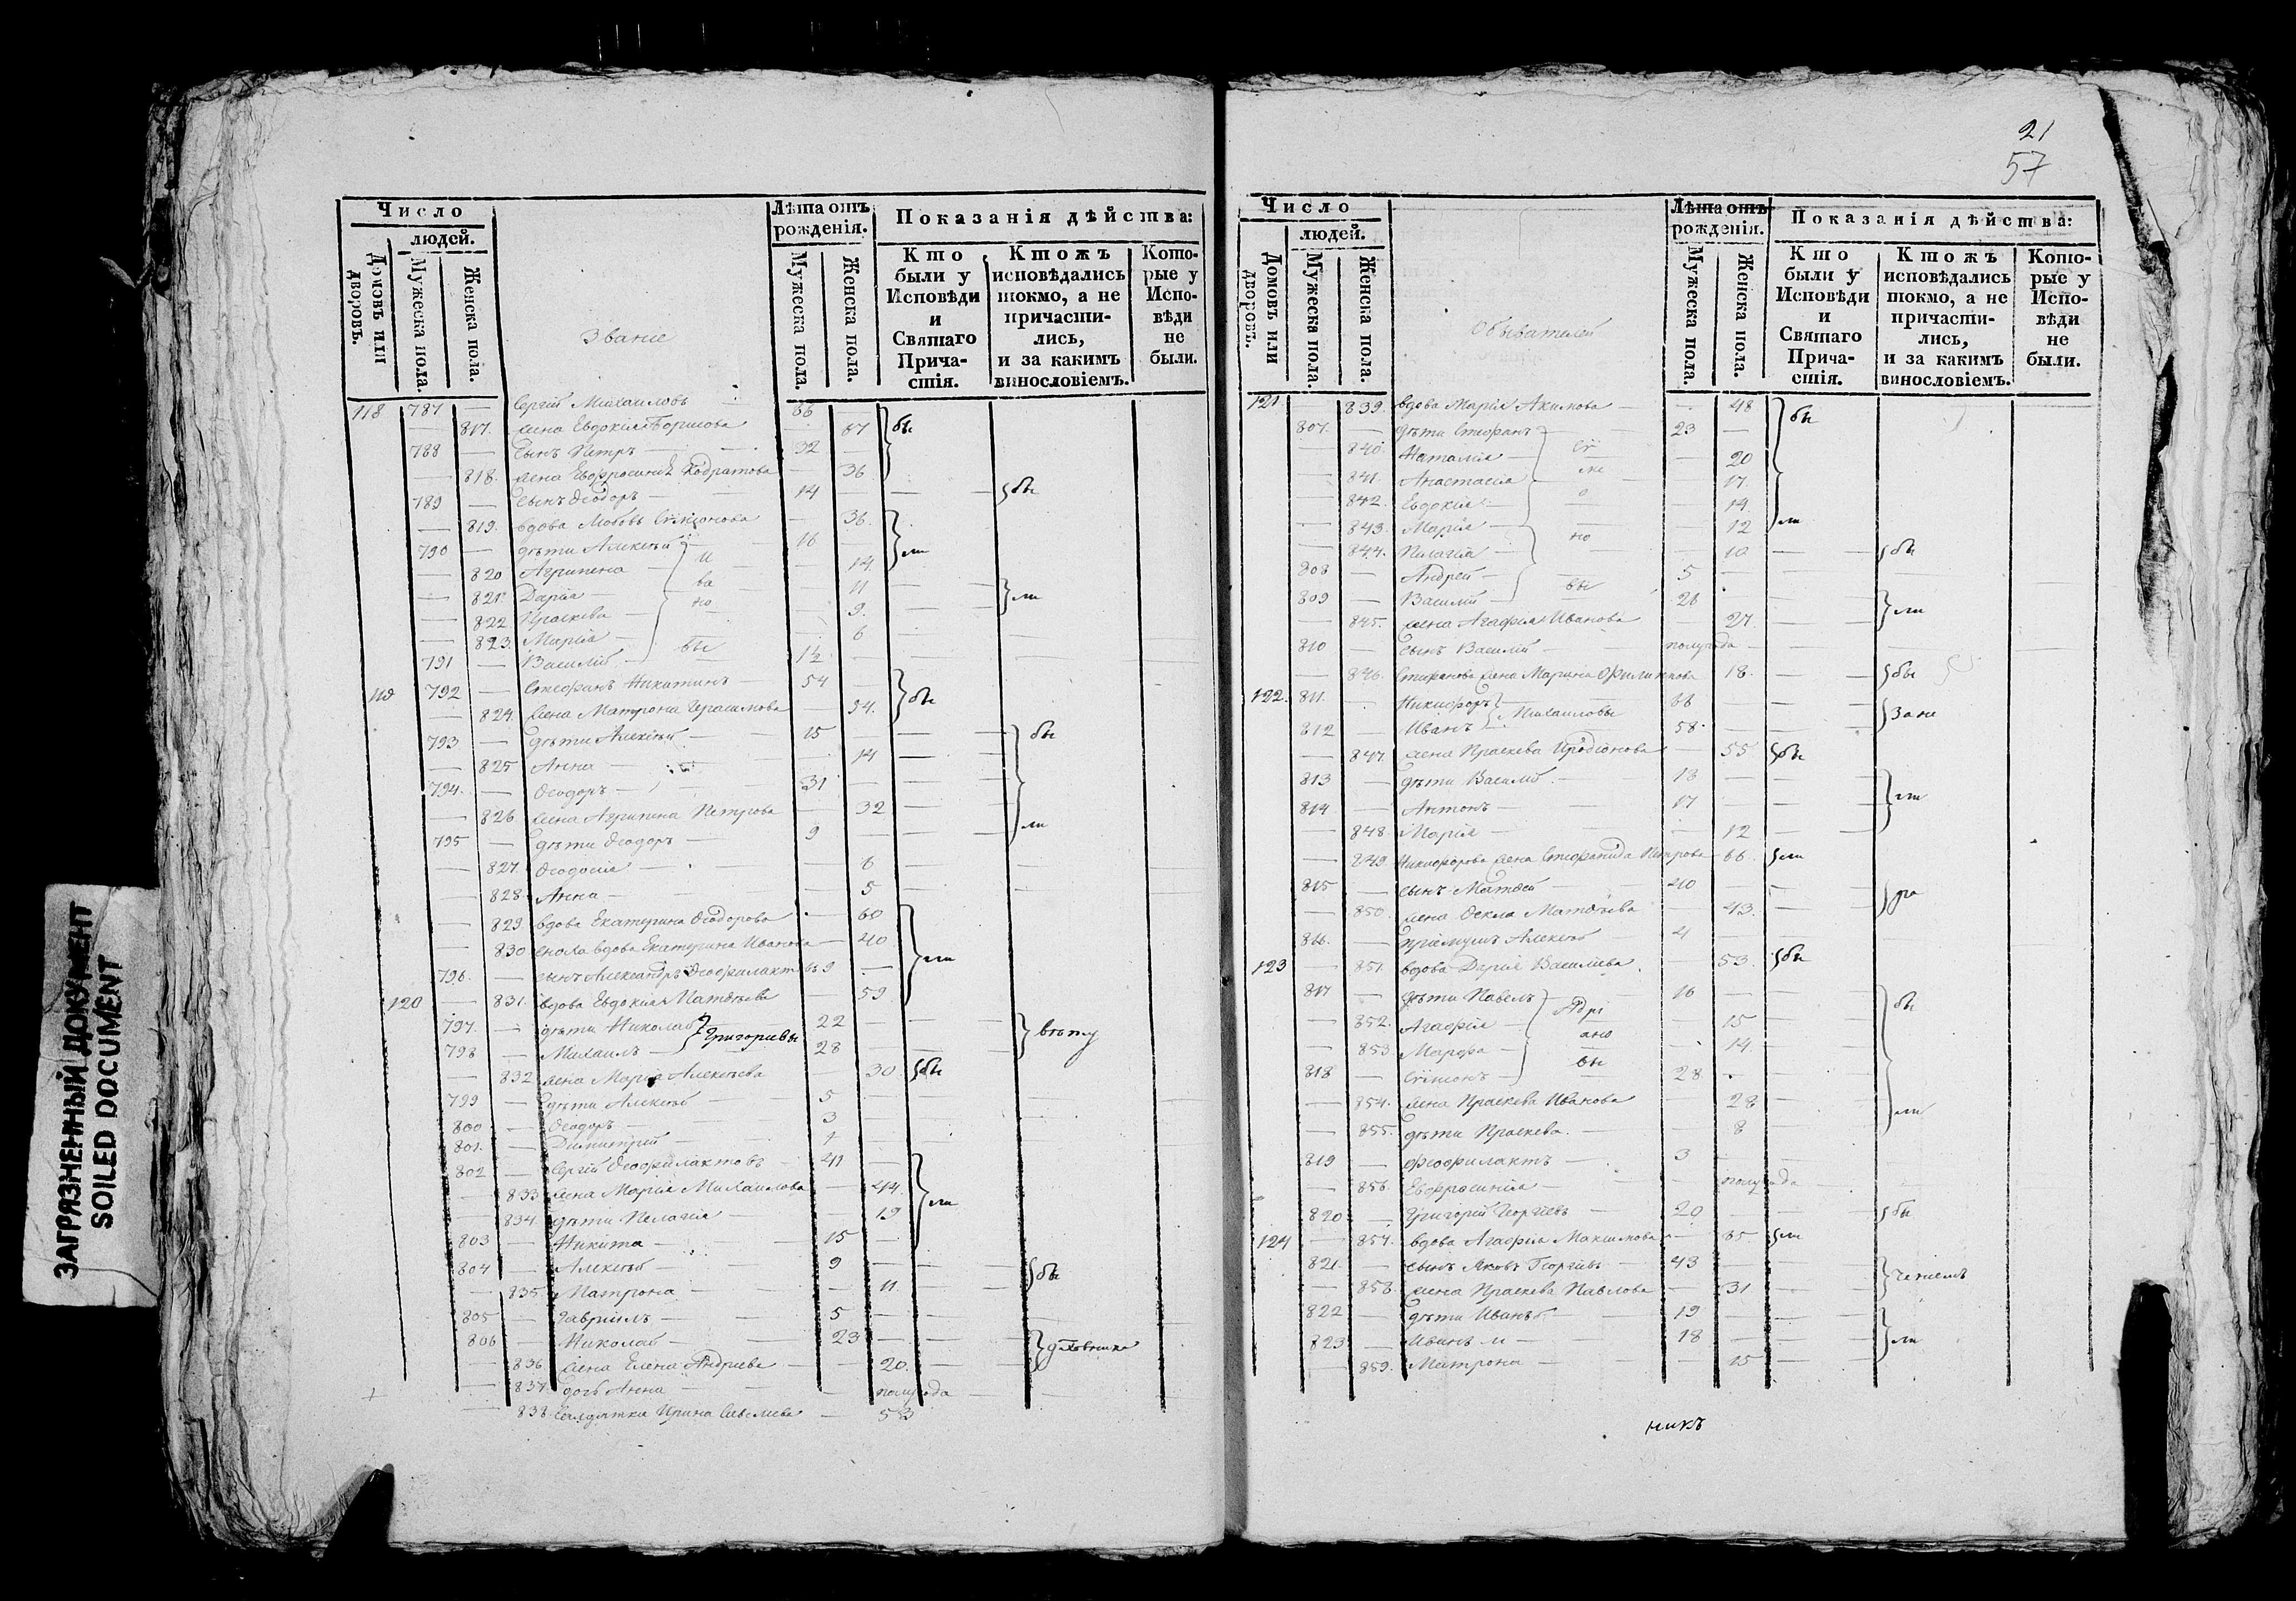 ЗАГРЯЗНЕННЫЙ ДОКУМЕНТ
SOILED DOCUMENT
Число
людей.
Домовъ или дворовъ.
Мужеска пола.
Женска пола.
Званіе
Лѣта отъ рожденія.
Мужеска пола.
Женска пола.
Показанія дѣйства:
Кто были у Исповѣди и Святаго Причастія.
Ктожъ исповѣдались токмо, а не причастились, и за какимъ винословіемъ.
Которые у Исповѣди не были.
118 787 — Сергій Михаиловъ — 66
— 817. жена Евдокія Борисова — 67 бы
788 — сынъ Петръ — 32 —
— 818. жена Евфросинія — 36
789 — сынъ Ѳеодоръ — 14 — бы
— 819. вдова Любовь — 36.
790 — дѣти Алексѣй — 16 ли
— 820 Агрипена — 14
— 821 Дарія — 11
— 822 Праскева — 9. ли
— 823. Марія — 6
791 — Василій — 1½
119 792 — Стефанъ Никитинъ — 54
— 824. жена Матрона Герасимова — 54. бы
793 — дѣти Алексѣй — 15 — бы
— 825 Анна — 14
794. — Ѳеодоръ — 31
— 826 жена Агрипина Петрова — 32
795 — дѣти Ѳеодоръ — 9 — ли
— 827. Ѳеодосія — 6
— 828 Анна — 5
— 829 вдова Екатерина Ѳеодорова — 60
— 830 сноха вдова Екатерина Иванова — 40
796. — сынъ Александръ Ѳеофилактовъ 9 — ли
120 — 831. вдова Евдокія Матвѣева — 59
797. — дѣти Николай Григорьевы 22
798 — Михаилъ — 28
— 832 жена Марія Алексѣева — 30 бы
799 — дѣти Алексѣй — 5
800 — Ѳеодоръ — 3
801. — Димитрей —
802 — Сергій Ѳеофилактовъ — 41
— 833 жена Марія Михаилова — 44. ли
— 834. дѣти Пелагія — 19
803 — Никита — 15
804 — Алексѣй — 9 — бы
— 835. Матрона — 11.
805 — Гавріилъ — 5
806 — Николай — 23
— 836. жена Елена Андреева — 20.
— 837. дочь Анна — полугода
— 838. Салдатка Ирина Савелиева — 53
21
57
Число
людей.
Домовъ или дворовъ.
Мужеска пола.
Женска пола.
Обывателей
Лѣта отъ рожденія.
Мужеска пола.
Женска пола.
Показанія дѣйства:
Кто были у Исповѣди и Святаго Причастія.
Ктожъ исповѣдались токмо, а не причастились, и за какимъ винословіемъ.
Которые у Исповѣди не были.
121 — 839. вдова Марія Акимова — 48 бы
807. — дѣти Стефанъ — 23
— 840. Наталія — 20
— 841. Анастасія — 17.
— 842. Евдокія — 14
— 843. Марія — 12 ли
— 844. Пелагія — 10 — бы
808 — Андрей — 5
809 — Василій — 26
— 845. жена Агафія Иванова — 27. ли
810 — сынъ Василій — полугода
— 846. Стефанова жена Марина Филиппова 18. — бы
122. 811. — Никифоръ Михаиловы 66
812 — Иванъ — 58
— 847. жена Праскева Иродіонова — 55 бы
813 — дѣти Василій — 13
814 — Антонъ — 17 ли
— 848. Марія — 12
— 849. Никифорова жена Стефанида Петрова 66. ли
815 — сынъ Матвей — 40
— 850. жена Ѳекла Матвѣева — 43.
816. — пріемышъ Алексѣй — 4
123 — 851. вдова Дарія Василіева — 53. бы
817 — дѣти Павелъ — 16 бы
— 852. Агафія — 15
— 853. Марфа — 14.
818 — Сумеонъ — 28.
— 854. жена Праскева Иванова — 28 ли
— 855. дѣти Праскева. — 8
819 — Феофилактъ — 3
— 856. Евфросинія — полугода
820 — Григорій Георгіевъ — 20 — бы
124 — 857. вдова Агафія Максимова — 65 ли
821. — сынъ Яковъ Георгіевъ — 43
— 858. жена Праскева Павлова — 31
822 — дѣти Иванъ б. — 19
823 — Иванъ м — 18 — ли
— 859. Матрона — 15
никъ